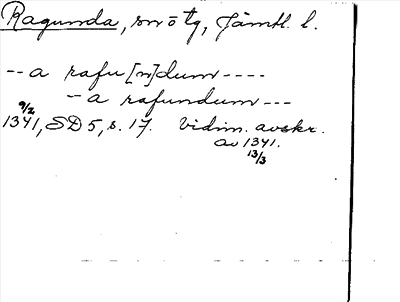 Ragunda, sn o tg, Jämtl. l.
-- a rafu [n]dum ----
- a rafundum ---
9/2
1341, SD 5, s. 17. Vidim. avskr.
av 1341.
13/3